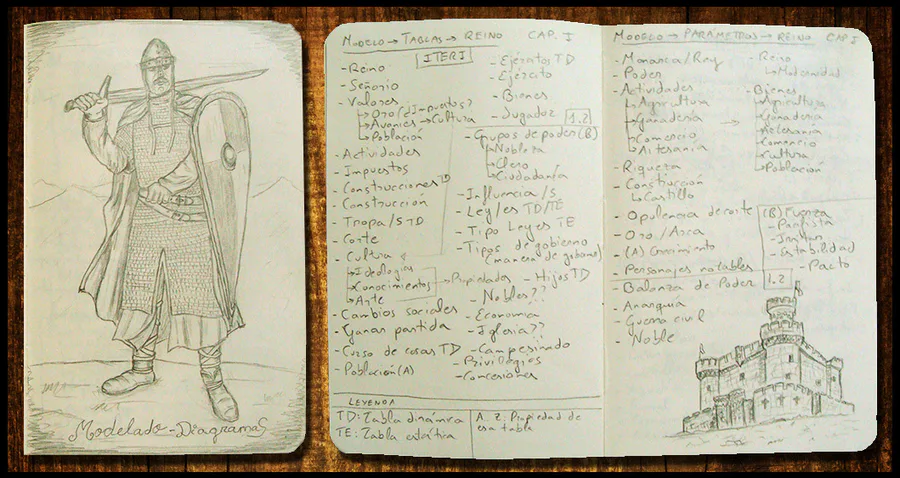 Modelado-Diagramas
Modelo → Tablas → Reino Cap. I
ITER I
- Reino
- Señorio
- Valores
↳ Oro (¿Impuestos?
↳ Avances → Cultura
↳ Población
- Actividades
- Impuestos
- Construcciones TD
- Construccion
- Tropa/s TD
- Corte
- Cultura
↳ Ideologias
↳ Conocimientos → Propiedades
↳ Arte
- Cambios sociales
- Ganar partida
- Curso de cosas TD
- Población (A)
- Ejércitos TD
- Ejército
- Bienes
- Jugador 1.2
- Grupos de poder (B)
↳ Nobleza
↳ Clero
↳ Ciudadanía
- Influencia/s
- Ley/es TD/TE
- Tipo Leyes TE
- Tipos de gobierno
(manera de gobernar)
- Hijos TD
- Nobles??
- Economia
- Iglesia??
- Campesinado
- Privilegios
- Concesiones
LEYENDA
TD: Tabla dinámica
TE: Tabla estática
A. Z. Propiedad de
esa tabla
Modelo → Parámetros → Reino Cap I
- Monarca/Rey
- Poder
- Actividades
↳ Agricultura
↳ Ganadería
↳ Comercio
↳ Artesanía
- Riqueza
- Construcción
↳ Castillo
- Opulencia de corte
- Oro / Arca
- (A) Crecimiento
- Personajes notables
- Balanza de Poder 1.2
- Anarquia
- Guerra civil
- Noble
- Reino
↳ Modernidad
- Bienes
↳ Agricultura
↳ Ganaderia
↳ Artesania
↳ Comercio
↳ Cultura
↳ Población
(B) Fuerza
- Estabilidad
- Pacto